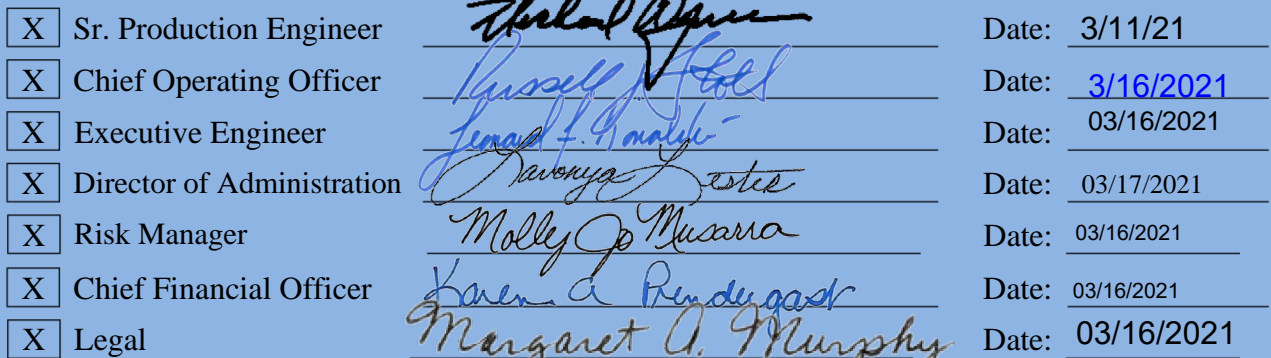 X Sr. Production Engineer Date: 3/11/21
X Chief Operating Officer Russell J. Stoll Date: 3/16/2021
X Executive Engineer Leonard F. Date: 03/16/2021
X Director of Administration Lavonya Lester Date: 03/17/2021
X Risk Manager Molly Jo Musarra Date: 03/16/2021
X Chief Financial Officer Karen A Prendergast Date: 03/16/2021
X Legal Margaret A. Murphy Date: 03/16/2021